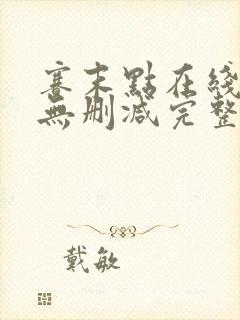 寒末點在綫
無刪減完整
戴敏